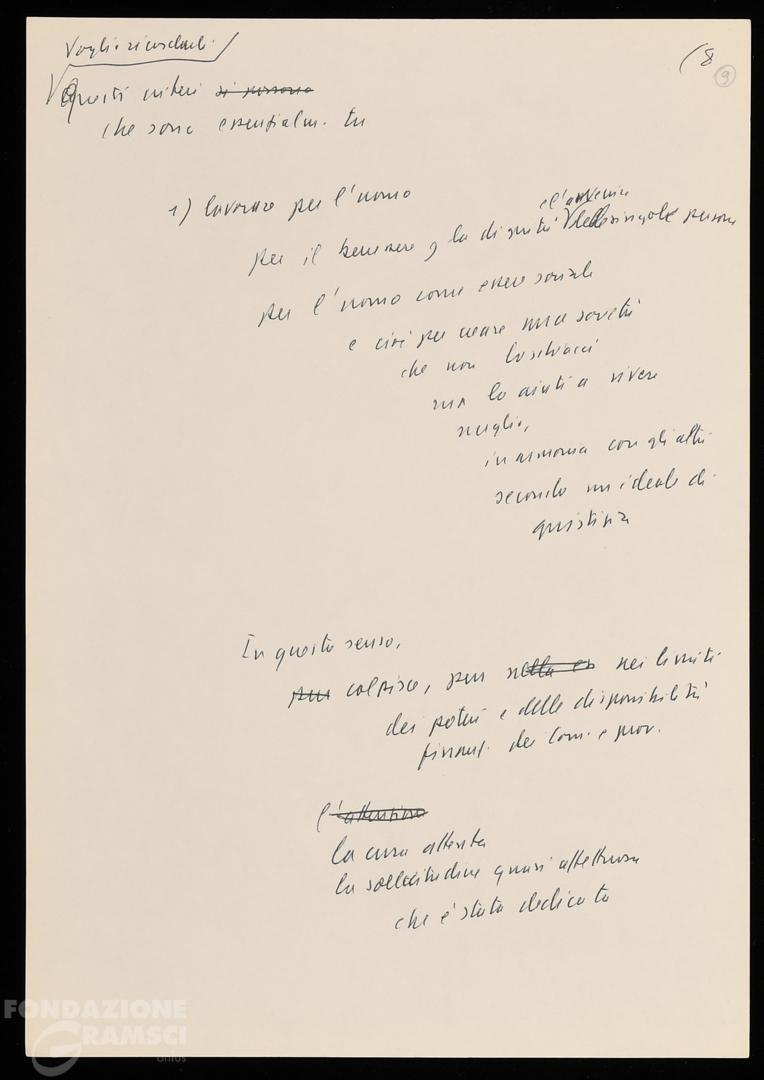 Voglio ricordarli
(8
9
Questi criteri si possono
che sono essenzialm. tre
1) lavorare per l'uomo
e l'avvenire
per il benessere e la dignità delle singole persone
per l'uomo come essere sociale
e cioè per creare una società
che non lo schiacci
ma lo aiuti a vivere
meglio,
in armonia con gli altri
secondo un ideale di
giustizia
In questo senso,
pur colpisce, pur nella nei limiti
dei poteri e delle disponibilità
finanz. dei Com. e prov.
l'attenzione
la cura attenta
la sollecitudine quasi affettuosa
che è stata dedicata
FONDAZIONE
GRAMSCI
onlus